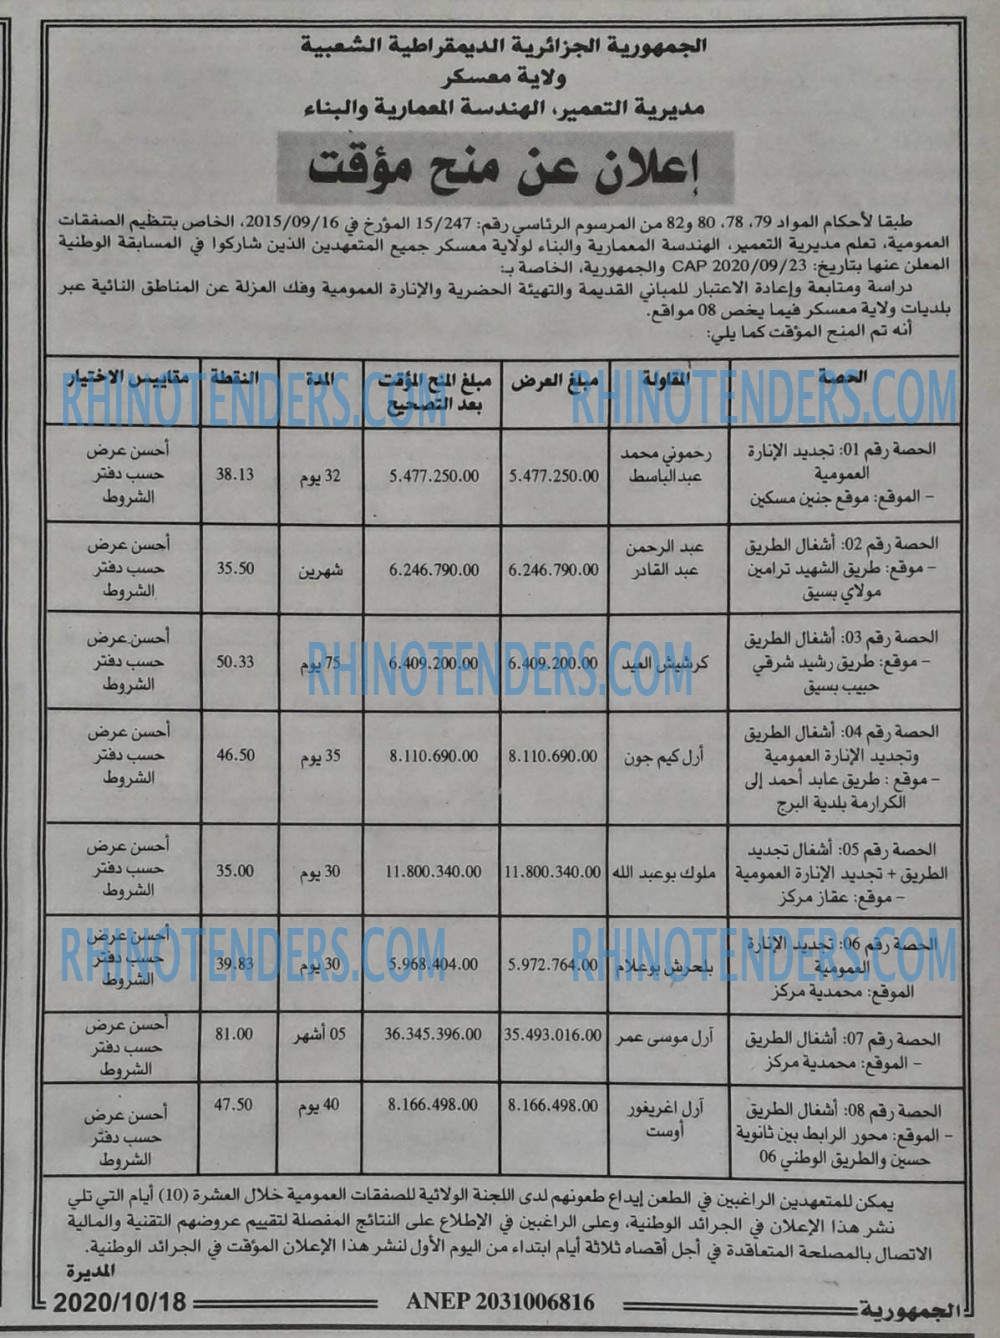 الجمهورية الجزائرية الديمقراطية الشعبية
ولاية معسكر
مديرية التعمير، الهندسة المعمارية والبناء
إعلان عن منح مؤقت
طبقا لأحكام المواد 79، 78، 80 و82 من المرسوم الرئاسي رقم: 15/247 المؤرخ في 2015/09/16، الخاص بتنظيم الصفقات
العمومية، تعلم مديرية التعمير، الهندسة المعمارية والبناء لولاية معسكر جميع المتعهدين الذين شاركوا في المسابقة الوطنية
المعلن عنها بتاريخ: 2020/09/23 CAP والجمهورية، الخاصة بـ:
دراسة ومتابعة وإعادة الاعتبار للمباني القديمة والتهيئة الحضرية والإنارة العمومية وفك العزلة عن المناطق النائية عبر
بلديات ولاية معسكر فيما يخص 08 مواقع.
أنه تم المنح المؤقت كما يلي:
الحصة المقاولة مبلغ العرض مبلغ المنح المؤقت المدة النقطة مقاييس الاختيار
بعد التصحيح
RHINOTENDERS.COM RHINOTENDERS.COM
الحصة رقم 01: تجديد الإنارة رحموني محمد أحسن عرض
العمومية عبدالباسط 5.477.250.00 5.477.250.00 32 يوم 38.13 حسب دفتر
- الموقع: موقع جنين مسكين الشروط
الحصة رقم 02: أشغال الطريق عبد الرحمن أحسن عرض
- موقع: طريق الشهيد ترامين عبد القادر 6.246.790.00 6.246.790.00 شهرين 35.50 حسب دفتر
مولاي بسيق الشروط
الحصة رقم 03: أشغال الطريق أحسن عرض
- موقع: طريق رشيد شرقي كرشيش العيد 6.409.200.00 6.409.200.00 75 يوم 50.33 حسب دفتر
حبيب بسيق الشروط
RHINOTENDERS.COM
الحصة رقم 04: أشغال الطريق أحسن عرض
وتجديد الإنارة العمومية أرل كيم جون 8.110.690.00 8.110.690.00 35 يوم 46.50 حسب دفتر
- موقع : طريق عابد أحمد إلى الشروط
الكرارمة بلدية البرج
الحصة رقم 05: أشغال تجديد أحسن عرض
الطريق + تجديد الإنارة العمومية ملوك بوعبد الله 11.800.340.00 11.800.340.00 30 يوم 35.00 حسب دفتر
- موقع: عقاز مركز الشروط
الحصة رقم 06: تجديد الإنارة أحسن عرض
العمومية بلحرش بوعلام 5.972.764.00 5.968.404.00 30 يوم 39.83 حسب دفتر
الموقع: محمدية مركز الشروط
RHINOTENDERS.COM RHINOTENDERS.COM
الحصة رقم 07: أشغال الطريق آرل موسى عمر 35.493.016.00 36.345.396.00 05 أشهر 81.00 أحسن عرض
- الموقع: محمدية مركز حسب دفتر
الشروط
الحصة رقم 08: أشغال الطريق آرل اغريغور 8.166.498.00 8.166.498.00 40 يوم 47.50 أحسن عرض
- الموقع: محور الرابط بين ثانوية أوست حسب دفتر
حسين والطريق الوطني 06 الشروط
يمكن للمتعهدين الراغبين في الطعن إيداع طعونهم لدى اللجنة الولائية للصفقات العمومية خلال العشرة (10) أيام التي تلي
نشر هذا الإعلان في الجرائد الوطنية، وعلى الراغبين في الإطلاع على النتائج المفصلة لتقييم عروضهم التقنية والمالية
الاتصال بالمصلحة المتعاقدة في أجل أقصاه ثلاثة أيام ابتداء من اليوم الأول لنشر هذا الإعلان المؤقت في الجرائد الوطنية.
المديرة
الجمهورية ANEP 2031006816 2020/10/18